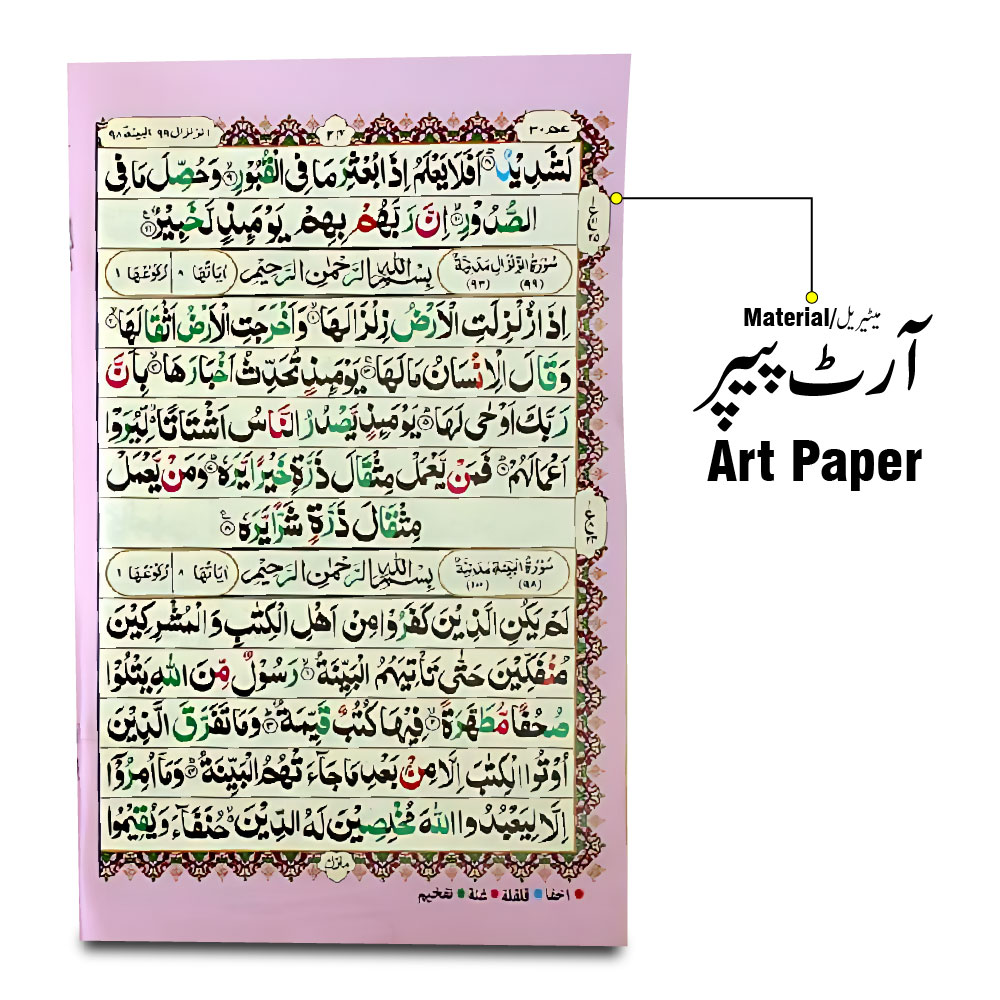 عم ۳۰
۲۴
الزلزال ۹۹ البينة ۹۸
لَشَدِيْدٌ ۝۸ اَفَلَا يَعْلَمُ اِذَا بُعْثِرَ مَا فِى الْقُبُوْرِ ۝۹ وَحُصِّلَ مَا فِى
الصُّدُوْرِ ۝۱۰ اِنَّ رَبَّهُمْ بِهِمْ يَوْمَئِذٍ لَّخَبِيْرٌ ۝۱۱
سُوْرَةُ الزِّلْزَالِ مَدَنِيَّةٌ (۹۹) (۹۳) بِسْمِ اللّٰهِ الرَّحْمٰنِ الرَّحِيْمِ اٰيَاتُهَا ۸ رُكُوْعُهَا ۱
اِذَا زُلْزِلَتِ الْاَرْضُ زِلْزَالَهَا ۝۱ وَاَخْرَجَتِ الْاَرْضُ اَثْقَالَهَا ۝۲
وَقَالَ الْاِنْسَانُ مَا لَهَا ۝۳ يَوْمَئِذٍ تُحَدِّثُ اَخْبَارَهَا ۝۴ بِاَنَّ
رَبَّكَ اَوْحٰى لَهَا ۝۵ يَوْمَئِذٍ يَّصْدُرُ النَّاسُ اَشْتَاتًا ۙ لِّيُرَوْا
اَعْمَالَهُمْ ۝۶ فَمَنْ يَّعْمَلْ مِثْقَالَ ذَرَّةٍ خَيْرًا يَّرَهٗ ۝۷ وَمَنْ يَّعْمَلْ
مِثْقَالَ ذَرَّةٍ شَرًّا يَّرَهٗ ۝۸
سُوْرَةُ الْبَيِّنَةِ مَدَنِيَّةٌ (۹۸) (۱۰۰) بِسْمِ اللّٰهِ الرَّحْمٰنِ الرَّحِيْمِ اٰيَاتُهَا ۸ رُكُوْعُهَا ۱
لَمْ يَكُنِ الَّذِيْنَ كَفَرُوْا مِنْ اَهْلِ الْكِتٰبِ وَالْمُشْرِكِيْنَ
مُنْفَكِّيْنَ حَتّٰى تَاْتِيَهُمُ الْبَيِّنَةُ ۝۱ رَسُوْلٌ مِّنَ اللّٰهِ يَتْلُوْا
صُحُفًا مُّطَهَّرَةً ۝۲ فِيْهَا كُتُبٌ قَيِّمَةٌ ۝۳ وَمَا تَفَرَّقَ الَّذِيْنَ
اُوْتُوا الْكِتٰبَ اِلَّا مِنْۢ بَعْدِ مَا جَآءَتْهُمُ الْبَيِّنَةُ ۝۴ وَمَآ اُمِرُوْٓا
اِلَّا لِيَعْبُدُوا اللّٰهَ مُخْلِصِيْنَ لَهُ الدِّيْنَ ۙ حُنَفَآءَ وَيُقِيْمُوا
منزل
اخفا قلقلة شنة تفخيم
Material/میٹیریل
آرٹ پیپر
Art Paper